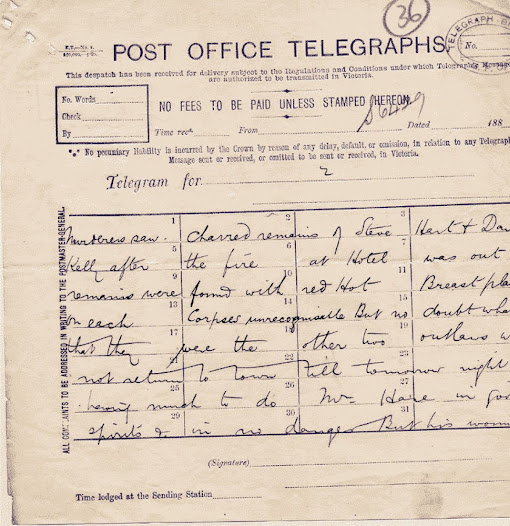 36
TELEGRAPH
No.
POST OFFICE TELEGRAPHS.
This despatch has been received for delivery subject to the Regulations and Conditions under which Telegraphic Message
are authorized to be transmitted in Victoria.
No. Words
Check
By
NO FEES TO BE PAID UNLESS STAMPED HEREON.
Time rec. From Dated 188
No pecuniary liability is incurred by the Crown by reason of any delay, default, or omission, in relation to any Telegraph
Message sent or received, or omitted to be sent or received, in Victoria.
Telegram for
2
ALL COMPLAINTS TO BE ADDRESSED IN WRITING TO THE POSTMASTER-GENERAL.
1 2 3
Murderers saw. Charred remains of Steve Hart & Dan
5 6 7
Kelly after the fire at Hotel was out
9 10 11
remains were found with red Hot Breast pla
13 14 15
on each Corpses unrecognisable But no doubt wha
17 18 19
that they were the other two outlaws w
21 22 23
not return to town till tomorrow night
25 26 27
having much to do Mr Hare in goo
29 30 31
spirits & in no danger But his woun
(Signature)
Time lodged at the Sending Station